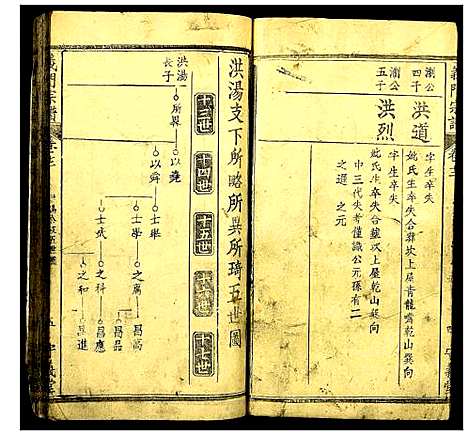 義門宗譜
卷之
瀏公
四子
洪道
字生卒失
妣氏生卒失合葬坎上屋青龍嘴乾山巽向
瀏公
五子
洪烈
字生卒失
妣氏生卒失合巍坎上屋乾山巽向
中三代失考僅識公元孫有二
之選 之元
洪湯支下所略所異所琦五世圖
十三世 十四世 十五世 十六世 十七世
洪湯
長子
所異
以堯
以舜
士舉
士學
士武
之為
之科
之和
昌高
昌品
昌應
昌進
義門宗譜
五